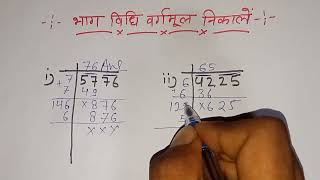 -:- भाग विधि वर्गमूल निकालें -:-
76 Ans
i) 7 5776
+7 49
146 ×876
6 876
×××
65
ii) 6 4225
6 36
12 ×625